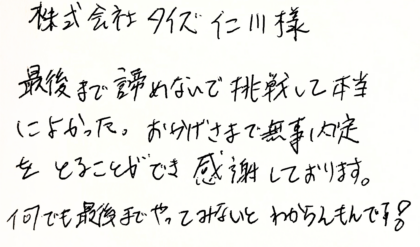 株式会社タイズ 仁川様
最後まで諦めないで挑戦して本当
によかった。おかげさまで無事内定
をとることができ感謝しております。
何でも最後までやってみないとわからんもんです!